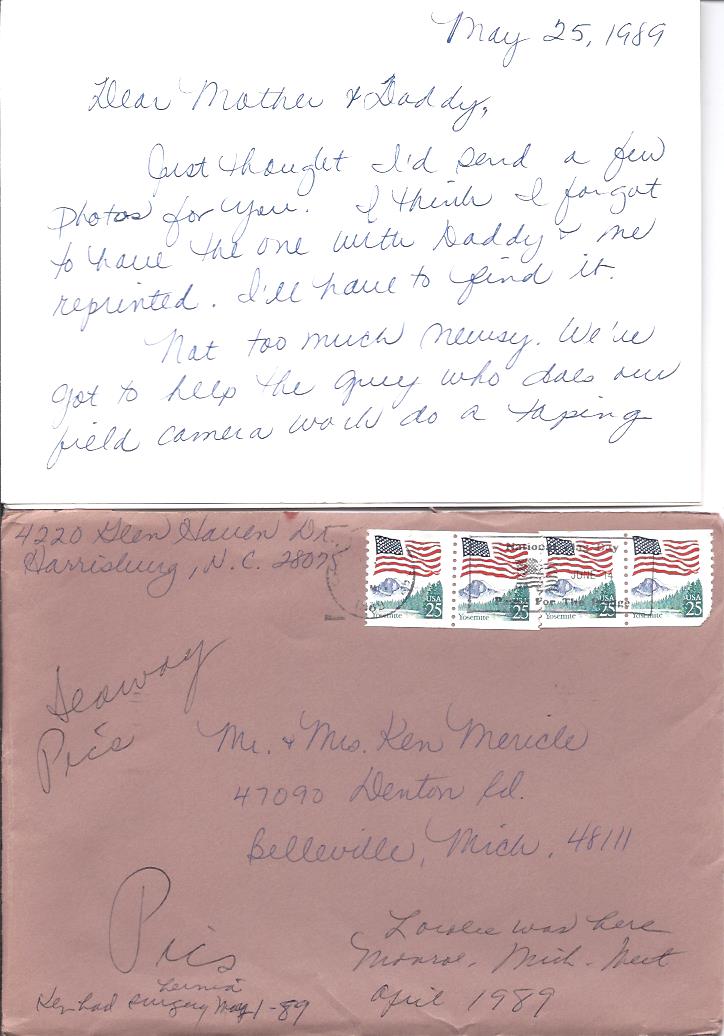 May 25, 1989
Dear Mother & Daddy,
Just thought I'd send a few
photos for you. I think I forgot
to have the one with Daddy & me
reprinted. I'll have to find it.
Not too much newsy. We've
got to help the guy who does our
field camera work do a taping
4220 Glen Haven Dr.
Harrisburg, N.C. 28075
USA 25
Yosemite
USA 25
Yosemite
USA 25
Yosemite
USA 25
Yosemite
National Flag Day
JUNE 14
For The
Seaway
Pics
Mr. & Mrs. Ken Mericle
47090 Denton Rd.
Belleville, Mich. 48111
Pics
was here
Monroe, Mich. Meet
April 1989
Ken had hernia surgery May 1-89